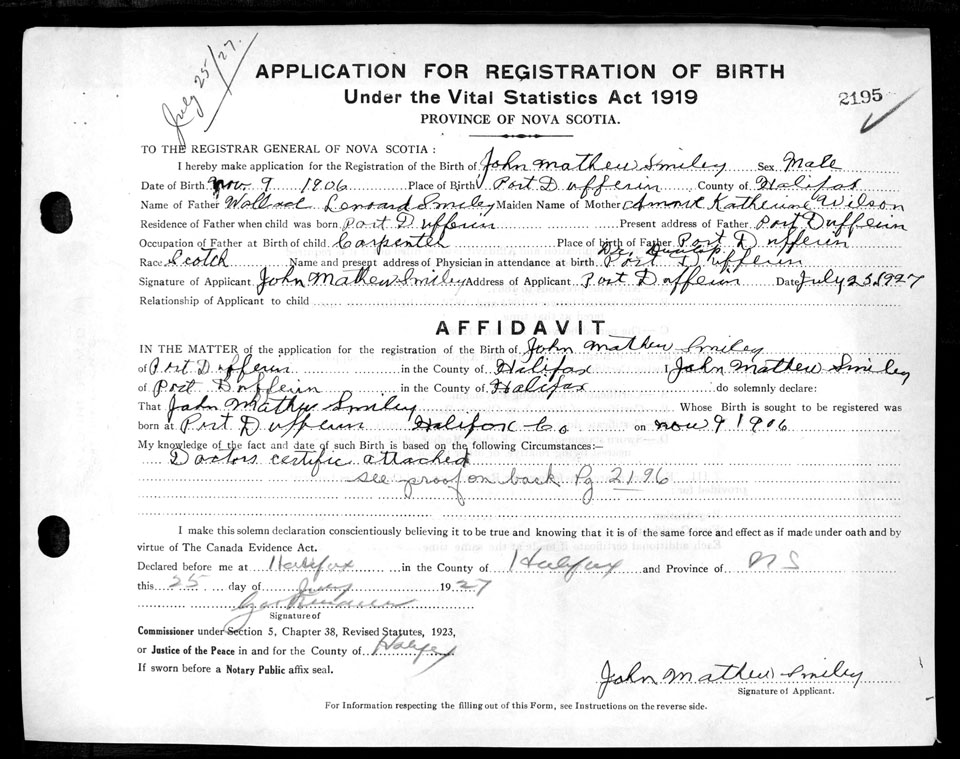 July 25/27.
APPLICATION FOR REGISTRATION OF BIRTH
Under the Vital Statistics Act 1919
2195
PROVINCE OF NOVA SCOTIA.
TO THE REGISTRAR GENERAL OF NOVA SCOTIA :
I hereby make application for the Registration of the Birth of John Mathew Smiley Sex Male
Date of Birth Nov. 9 1906 Place of Birth Port Dufferin County of Halifax
Name of Father Leonard Smiley Maiden Name of Mother Katherine Wilson
Residence of Father when child was born Port Dufferin Present address of Father Port Dufferin
Occupation of Father at Birth of child Carpenter Place of birth of Father Port Dufferin
Dr. Dunlap
Race Scotch Name and present address of Physician in attendance at birth Port Dufferin
Signature of Applicant John Mathew Smiley Address of Applicant Port Dufferin Date July 25 1927
Relationship of Applicant to child
AFFIDAVIT
IN THE MATTER of the application for the registration of the Birth of John Mathew Smiley
of Port Dufferin in the County of Halifax I John Mathew Smiley
of Port Dufferin in the County of Halifax do solemnly declare:
That John Mathew Smiley Whose Birth is sought to be registered was
born at Port Dufferin Halifax Co on Nov 9 1906
My knowledge of the fact and date of such Birth is based on the following Circumstances:—
Doctors certific attached
see proof on back Pg 2196
I make this solemn declaration conscientiously believing it to be true and knowing that it is of the same force and effect as if made under oath and by
virtue of The Canada Evidence Act.
Declared before me at Halifax in the County of Halifax and Province of NS
this 25 day of July 1927
Signature of
Commissioner under Section 5, Chapter 38, Revised Statutes, 1923,
or Justice of the Peace in and for the County of Halifax
If sworn before a Notary Public affix seal.
John Mathew Smiley
Signature of Applicant.
For Information respecting the filling out of this Form, see Instructions on the reverse side.